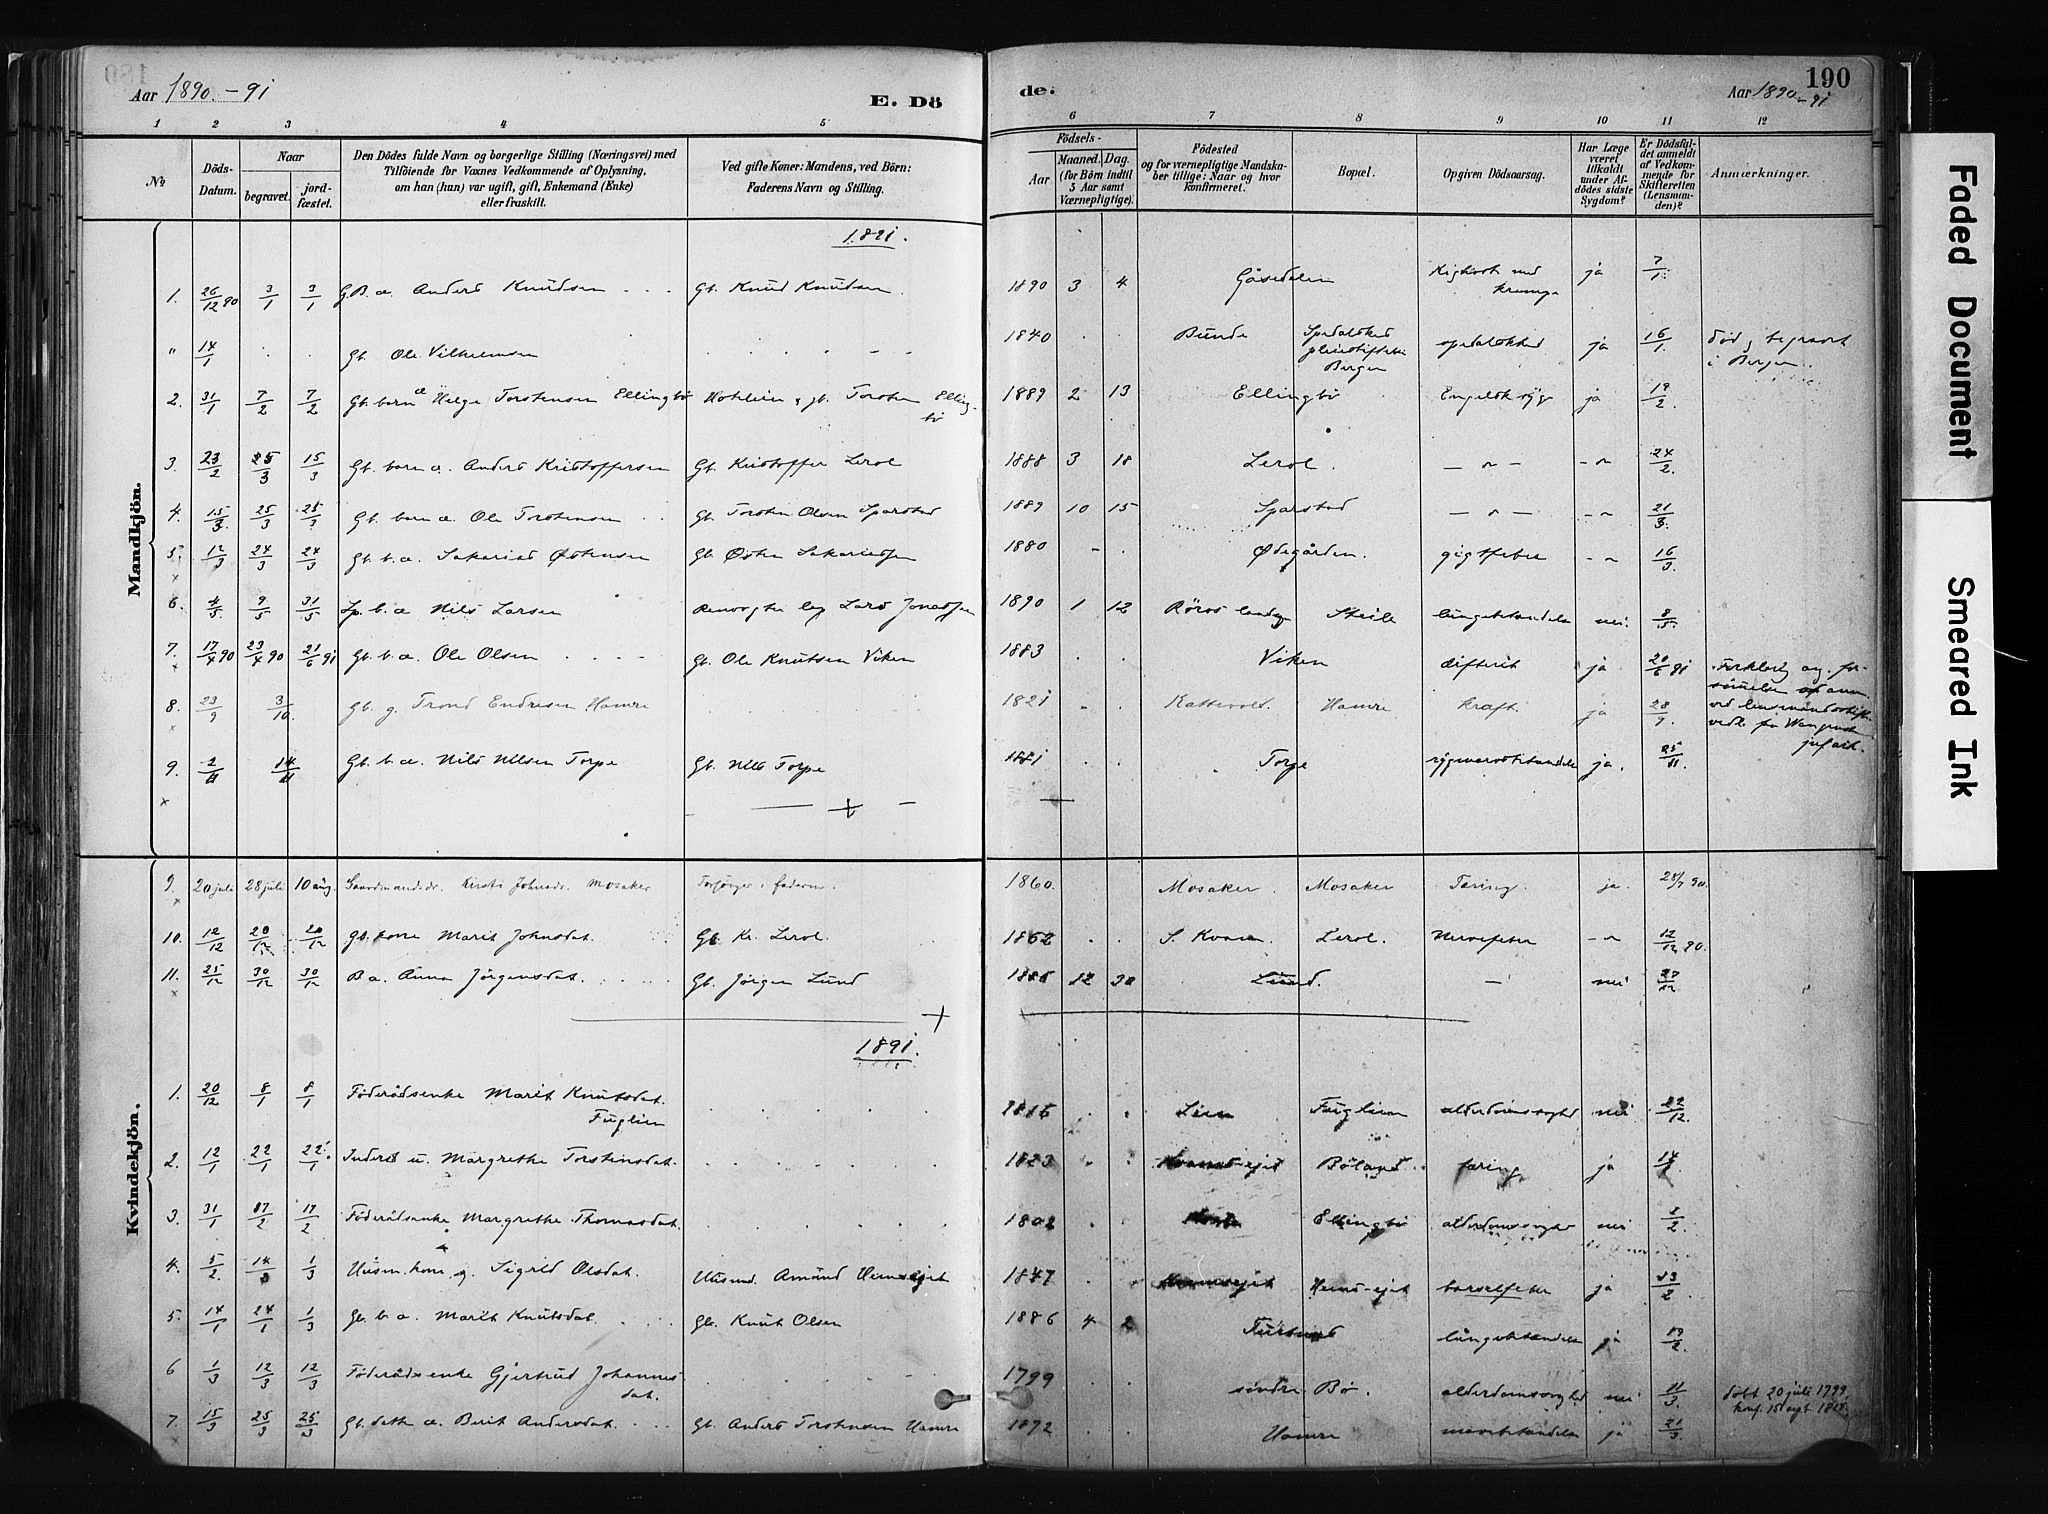 Aar 1890.-91
E. Dö
de.
Aar 1890-91
190
1 2 3 4 5 6 7 8 9 10 11 12
No
Döds-Datum.
Naar
begravet.
jord-fæstet.
Den Dödes fulde Navn og borgerlige Stilling (Næringsvei) med
Tilföiende for Voxnes Vedkommende af Oplysning,
om han (hun) var ugift, gift, Enkemand (Enke)
eller fraskilt.
Ved gifte Koner: Mandens, ved Börn:
Faderens Navn og Stilling.
Födsels-
Aar
Maaned. Dag.
(for Börn indtil
5 Aar samt
Værnepligtige).
Födested
og for værnepligtige Mandska-
ber tillige: Naar og hvor
konfirmeret.
Bopæl.
Opgiven Dödsaarsag.
Har Læge
været
tilkaldt
under Af-
dödes sidste
Sygdom?
Er Dödsfal-
det anmeldt
af Vedkom-
mende for
Skifteretten
(Lensman-
den)?
Anmærkninger.
Mandkjön.
1891.
1. 26/12 90 3/1 3/1 G.B. a. Anders Knudsen Gb. Knud Knudsen 1890 3 4 Gåsedalen ja 7/1
" 14/1 Gb. Ole Vilhelmsen 1840 Bunde Spedalsked pleiestiftelse Bergen spedalsked ja 16/1. död, begravet i Bergen.
2. 31/1 7/2 7/2 Gb. barn a Helge Torstensen Ellingbö Hoteleier & gb. Torsten Ellingbö 1889 2 13 Ellingbö Engelsk syge ja 19/2.
3. 23/2 25/3 15/3 Gb. barn a. Anders Kristoffersen Gb. Kristoffer Lerol 1888 3 18 Lerol. — " — - " 24/2.
4. 15/3. 25/3 25/3 Gb. barn a. Ole Torstensen Gb. Torsten Olsen Sparstad 1889 10 15 Sparstad — " — - " 21/3
5. 12/3 24/3 24/3 Gb. b. a. Sakarias Østensen Gb. Østen Sakariassen 1880 Ødegården. gigtfeber - " 16/3.
6. 4/5 9/5 31/5 Sp. b. a Nils Larsen Lars Jonassen 1890 1 12 Röros landsogn Steile lungebetændelse nei. 8/5.
7. 17/4 90 23/4 90 21/6 91 Gb. b. a. Ole Olsen Gb. Ole Knutsen Viken 1883 Viken difterit ja 20/6 91
8. 23/9 3/10. Gb. g. Trond Endresen Hamre 1821 Kattevold. Hamre kræft. ja 28/9.
9. 2/11 14/11 Gb. b. a. Nils Nilsen Torpe Gb. Nils Torpe 1881 Torpe rygmarvsbetændelse ja. 25/11.
Kvindekjön.
9. 20 juli 28 juli 10 aug. Gaardmandsdr. Kirsti Johnsdr. Mosaker Forsörger: faderen. 1860. Mosaker. Mosaker Tæring. ja. 28/7 90.
10. 12/12 20/12 20/12 gb. kone Marit Johnsdat. Gb. Kr. Lerol. 1862 S. Kvam. Lerol. Nervefeber - " 12/12 90.
11. 25/12 30/12 30/12 B a. Anna Jörgensdat. Gb. Jörgen Lund 1886 12 30 Lund. — nei 27/12
1891.
1. 20/12 8/1 8/1 Föderådsenke Marit Knutsdat. Fuglien 1816 Lien Fuglien alderdomssvaghed nei 22/12.
2. 12/1 22/1 22/1 Inderst u. Margrethe Torstensdat. 1823 Böland tæring ja 14/1
3. 31/1 17/2 17/2 Föderådsenke Margrethe Thomasdat. 1802 Ellingbö alderdomssvaghed nei 3/2
4. 5/2 14/ 1/3 Husm. kone g. Sigrid Olsdat. Husmd. Amund Heimseiet 1847 Heims-ejet barselfeber ja 13/2
5. 14/1 24/1 1/3 Gb. b. a. Marit Knutsdat. Gb. Knut Olsen 1886 4 2 lungebetændelse ja 19/2.
6 1/3 12/3 12/3 Föderådsenke Gjertrud Johannesdat. 1799 söndre Bö. alderdomssvaghed nei 11/3. döbt 20 juli 1799,
7. 15/3 25/3 25/3 Gb. datte a. Berit Andersdat. Gb. Anders Torstensen Hamre 1872 Hamre mavebetændelse ja 21/3
Faded Document
Smeared Ink